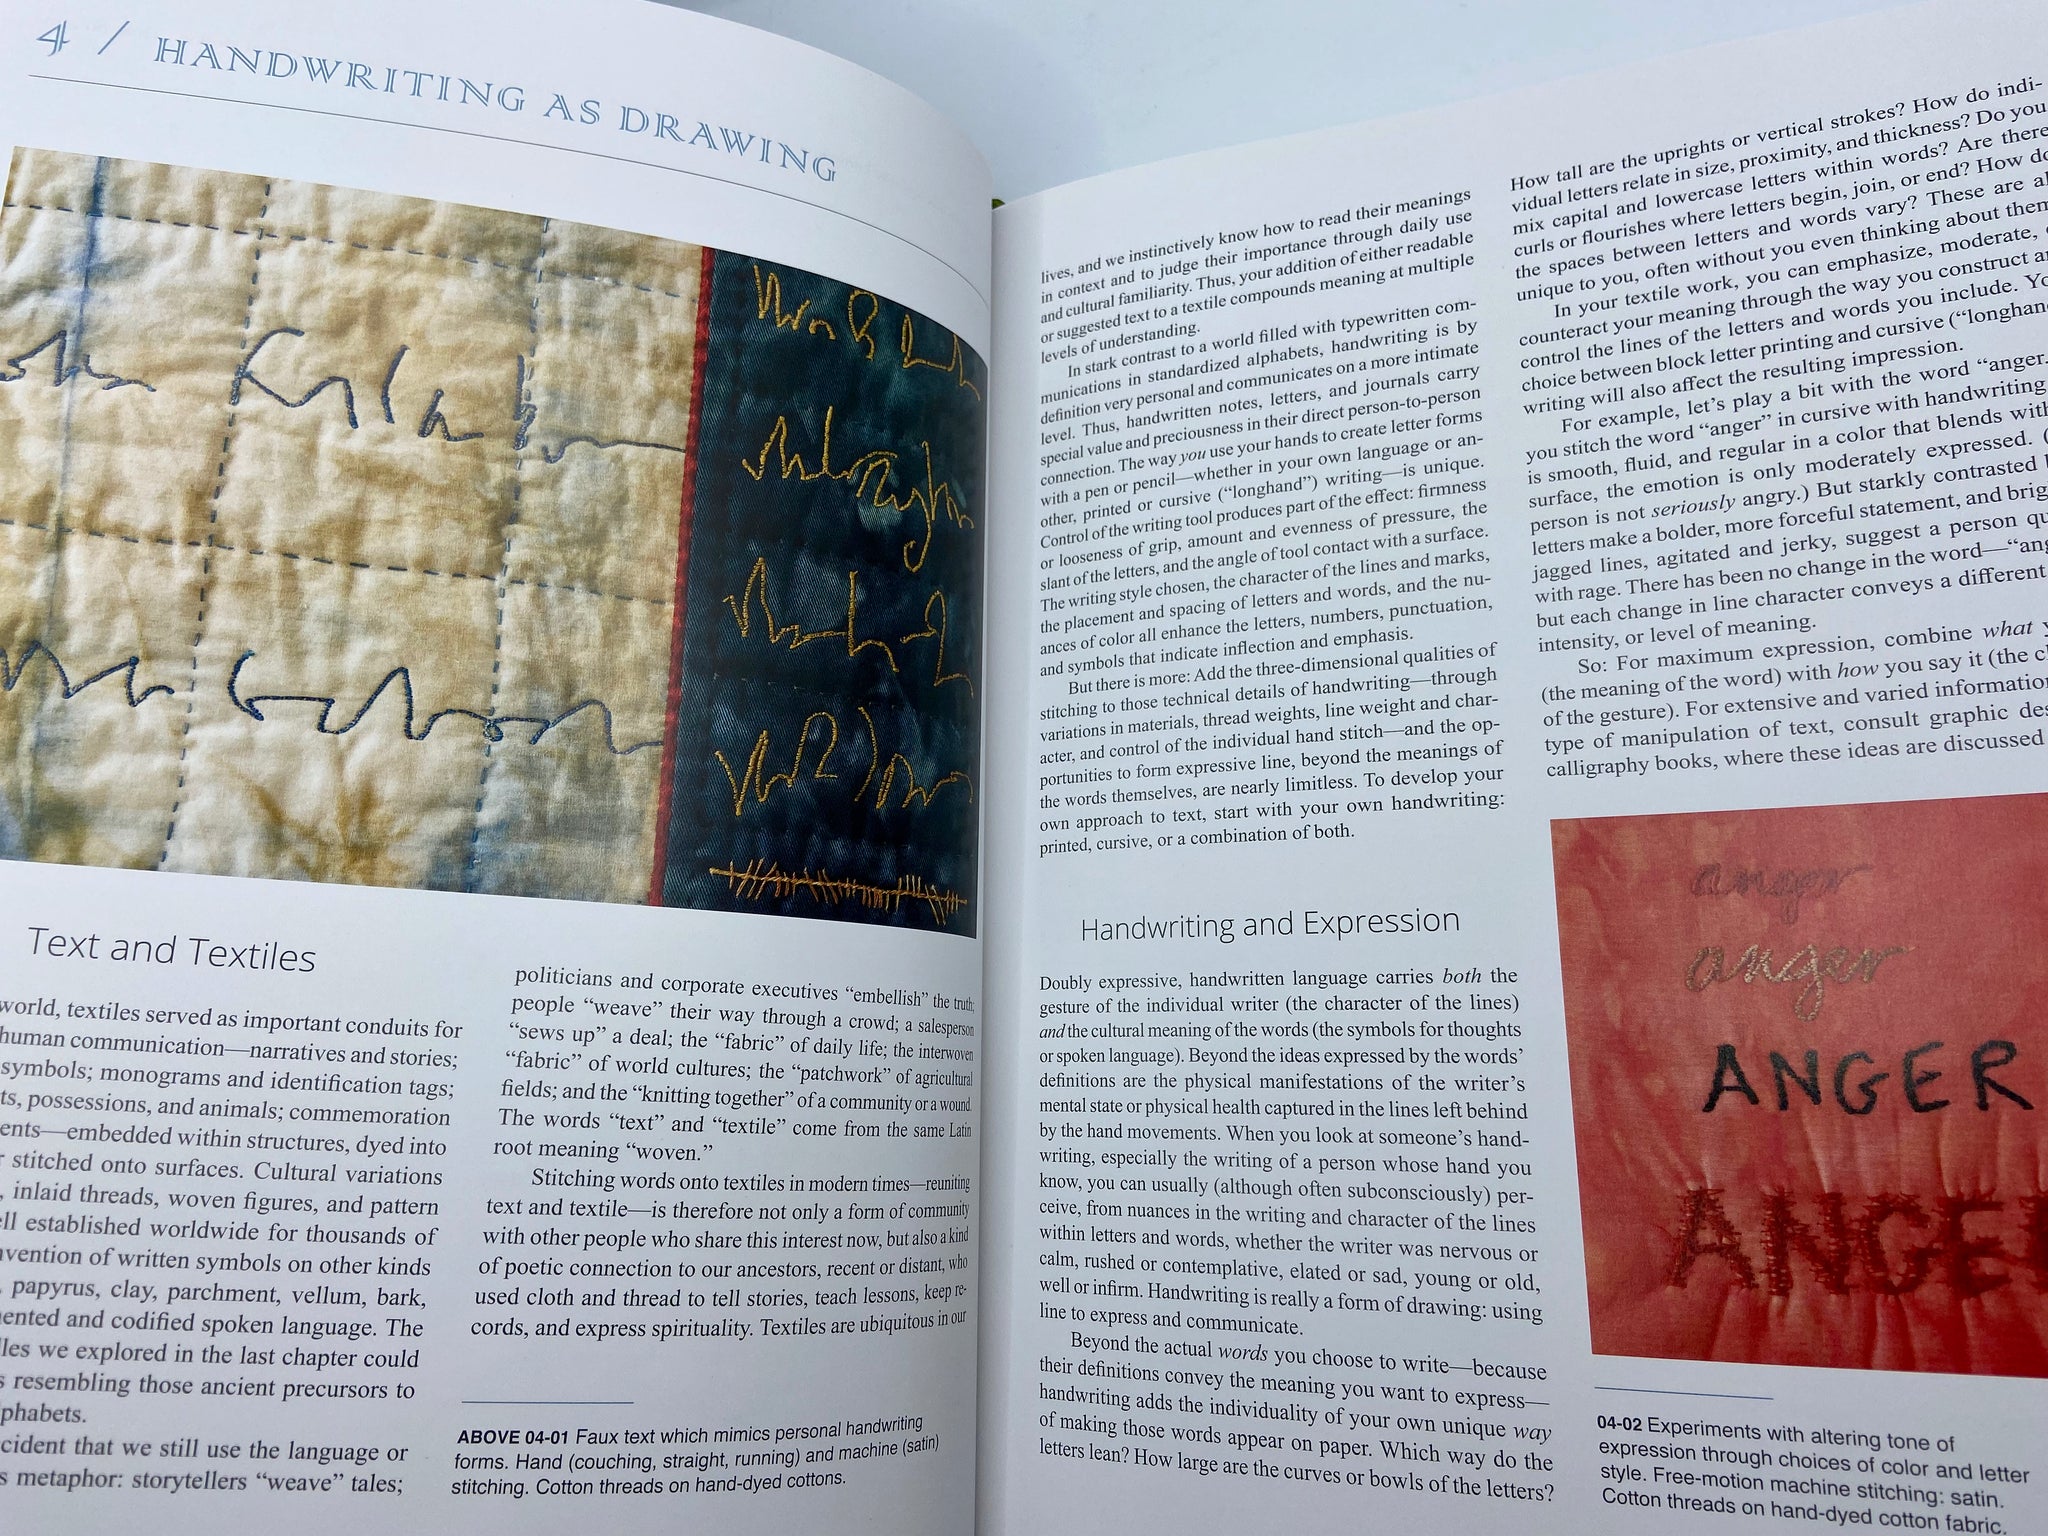 4 / HANDWRITING AS DRAWING
Text and Textiles
world, textiles served as important conduits for
human communication—narratives and stories;
symbols; monograms and identification tags;
possessions, and animals; commemoration
embedded within structures, dyed into
stitched onto surfaces. Cultural variations
, inlaid threads, woven figures, and pattern
established worldwide for thousands of
of written symbols on other kinds
, papyrus, clay, parchment, vellum, bark,
and codified spoken language. The
we explored in the last chapter could
resembling those ancient precursors to
that we still use the language or
metaphor: storytellers “weave” tales;
politicians and corporate executives “embellish” the truth;
people “weave” their way through a crowd; a salesperson
“sews up” a deal; the “fabric” of daily life; the interwoven
“fabric” of world cultures; the “patchwork” of agricultural
fields; and the “knitting together” of a community or a wound.
The words “text” and “textile” come from the same Latin
root meaning “woven.”
Stitching words onto textiles in modern times—reuniting
text and textile—is therefore not only a form of community
with other people who share this interest now, but also a kind
of poetic connection to our ancestors, recent or distant, who
used cloth and thread to tell stories, teach lessons, keep re-
cords, and express spirituality. Textiles are ubiquitous in our
ABOVE 04-01 Faux text which mimics personal handwriting
forms. Hand (couching, straight, running) and machine (satin)
stitching. Cotton threads on hand-dyed cottons.
lives, and we instinctively know how to read their meanings
in context and to judge their importance through daily use
and cultural familiarity. Thus, your addition of either readable
or suggested text to a textile compounds meaning at multiple
levels of understanding.
In stark contrast to a world filled with typewritten com-
munications in standardized alphabets, handwriting is by
definition very personal and communicates on a more intimate
level. Thus, handwritten notes, letters, and journals carry
special value and preciousness in their direct person-to-person
connection. The way you use your hands to create letter forms
with a pen or pencil—whether in your own language or an-
other, printed or cursive (“longhand”) writing—is unique.
Control of the writing tool produces part of the effect: firmness
or looseness of grip, amount and evenness of pressure, the
slant of the letters, and the angle of tool contact with a surface.
The writing style chosen, the character of the lines and marks,
the placement and spacing of letters and words, and the nu-
ances of color all enhance the letters, numbers, punctuation,
and symbols that indicate inflection and emphasis.
But there is more: Add the three-dimensional qualities of
stitching to those technical details of handwriting—through
variations in materials, thread weights, line weight and char-
acter, and control of the individual hand stitch—and the op-
portunities to form expressive line, beyond the meanings of
the words themselves, are nearly limitless. To develop your
own approach to text, start with your own handwriting:
printed, cursive, or a combination of both.
Handwriting and Expression
Doubly expressive, handwritten language carries both the
gesture of the individual writer (the character of the lines)
and the cultural meaning of the words (the symbols for thoughts
or spoken language). Beyond the ideas expressed by the words’
definitions are the physical manifestations of the writer’s
mental state or physical health captured in the lines left behind
by the hand movements. When you look at someone’s hand-
writing, especially the writing of a person whose hand you
know, you can usually (although often subconsciously) per-
ceive, from nuances in the writing and character of the lines
within letters and words, whether the writer was nervous or
calm, rushed or contemplative, elated or sad, young or old,
well or infirm. Handwriting is really a form of drawing: using
line to express and communicate.
Beyond the actual words you choose to write—because
their definitions convey the meaning you want to express—
handwriting adds the individuality of your own unique way
of making those words appear on paper. Which way do the
letters lean? How large are the curves or bowls of the letters?
How tall are the uprights or vertical strokes? How do indi-
vidual letters relate in size, proximity, and thickness? Do you
mix capital and lowercase letters within words? Are there
curls or flourishes where letters begin, join, or end? How do
the spaces between letters and words vary? These are
unique to you, often without you even thinking about them
In your textile work, you can emphasize, moderate,
counteract your meaning through the way you construct
control the lines of the letters and words you include.
choice between block letter printing and cursive (“longhand
writing will also affect the resulting impression.
For example, let’s play a bit with the word “anger.
you stitch the word “anger” in cursive with handwriting
is smooth, fluid, and regular in a color that blends with
surface, the emotion is only moderately expressed. (
person is not seriously angry.) But starkly contrasted
letters make a bolder, more forceful statement, and
jagged lines, agitated and jerky, suggest a person
with rage. There has been no change in the word—
but each change in line character conveys a different
intensity, or level of meaning.
So: For maximum expression, combine what
(the meaning of the word) with how you say it (the
of the gesture). For extensive and varied information
type of manipulation of text, consult graphic
calligraphy books, where these ideas are discussed
anger
anger
ANGER
ANGER
04-02 Experiments with altering tone of
expression through choices of color and letter
style. Free-motion machine stitching: satin.
Cotton threads on hand-dyed cotton fabric.